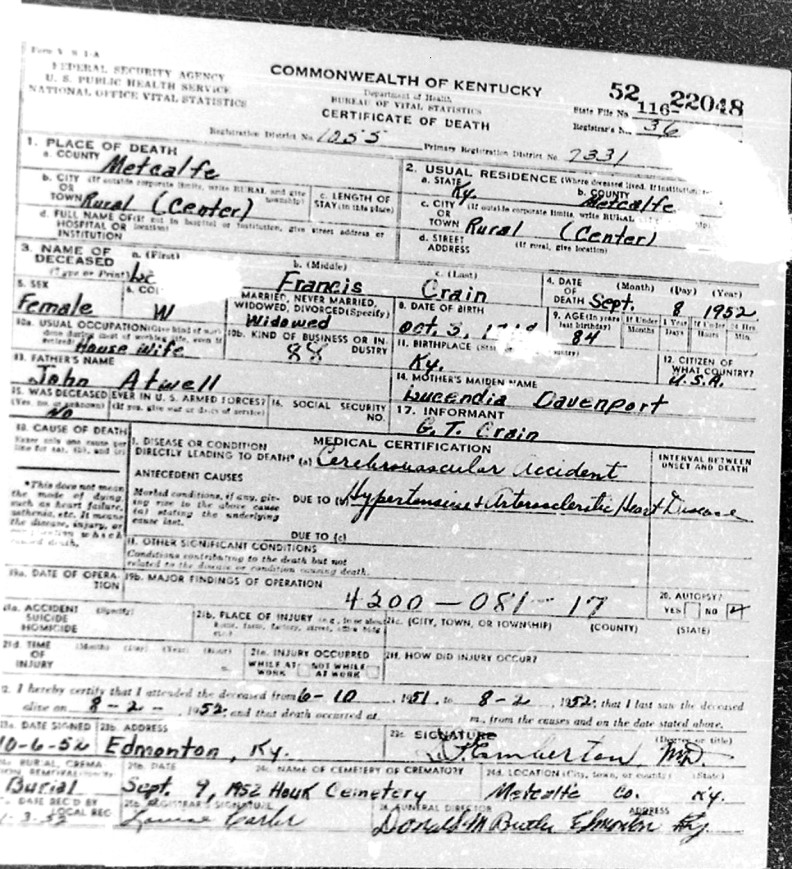 Form V. S. 1-A
FEDERAL SECURITY AGENCY
U. S. PUBLIC HEALTH SERVICE
NATIONAL OFFICE VITAL STATISTICS
COMMONWEALTH OF KENTUCKY
Department of Health
BUREAU OF VITAL STATISTICS
CERTIFICATE OF DEATH
52 116 22048
State File No.
Registrar's No. 36
Registration District No. 1055 Primary Registration District No. 7331
1. PLACE OF DEATH
a. COUNTY Metcalfe
b. CITY (If outside corporate limits, write RURAL and give township) OR TOWN Rural (Center)
c. LENGTH OF STAY (in this place)
d. FULL NAME OF (If not in hospital or institution, give street address or location) HOSPITAL OR INSTITUTION
2. USUAL RESIDENCE (Where deceased lived. If institution:
a. STATE Ky. b. COUNTY Metcalfe
c. CITY (If outside corporate limits, write RURAL OR TOWN Rural (Center)
d. STREET ADDRESS (If rural, give location)
3. NAME OF DECEASED (Type or Print) a. (First) b. (Middle) Francis c. (Last) Crain
4. DATE OF DEATH (Month) (Day) (Year) Sept. 8 1952
5. SEX Female
6. CO W
MARRIED, NEVER MARRIED, WIDOWED, DIVORCED (Specify) Widowed
8. DATE OF BIRTH Oct. 3,
9. AGE (In years last birthday) 84 If Under 1 Year Months Days If Under 24 Hrs. Hours Min.
10a. USUAL OCCUPATION (Give kind of work done during most of working life, even if retired) House Wife
10b. KIND OF BUSINESS OR INDUSTRY 88
11. BIRTHPLACE Ky.
12. CITIZEN OF WHAT COUNTRY? U.S.A.
13. FATHER'S NAME John Atwell
14. MOTHER'S MAIDEN NAME Lucendia Davenport
15. WAS DECEASED EVER IN U. S. ARMED FORCES? (Yes, no, or unknown) (If yes, give war or dates of service) No
16. SOCIAL SECURITY NO.
17. INFORMANT G. T. Crain
18. CAUSE OF DEATH
Enter only one cause per line for (a), (b), and (c)
MEDICAL CERTIFICATION
INTERVAL BETWEEN ONSET AND DEATH
I. DISEASE OR CONDITION DIRECTLY LEADING TO DEATH* (a) Cerebrovascular Accident
*This does not mean the mode of dying, such as heart failure, asthenia, etc. It means the disease, injury, or complication which caused death.
ANTECEDENT CAUSES
Morbid conditions, if any, giving rise to the above cause (a) stating the underlying cause last.
DUE TO (b) Hypertensive & Arteriosclerotic Heart Disease
DUE TO (c)
II. OTHER SIGNIFICANT CONDITIONS
Conditions contributing to the death but not related to the disease or condition causing death.
19a. DATE OF OPERATION
19b. MAJOR FINDINGS OF OPERATION
4200-081-17
20. AUTOPSY? YES NO
21a. ACCIDENT SUICIDE HOMICIDE (Specify)
21b. PLACE OF INJURY (e.g., in or about home, farm, factory, street, office bldg., etc.)
21c. (CITY, TOWN, OR TOWNSHIP) (COUNTY) (STATE)
21d. TIME OF INJURY (Month) (Day) (Year) (Hour) m.
21e. INJURY OCCURRED WHILE AT WORK NOT WHILE AT WORK
21f. HOW DID INJURY OCCUR?
22. I hereby certify that I attended the deceased from 6-10 1951, to 8-2, 1952; that I last saw the deceased
alive on 8-2- 1952; and that death occurred at m., from the causes and on the date stated above.
23a. DATE SIGNED 10-6-52
23b. ADDRESS Edmonton, Ky.
23c. SIGNATURE (Degree or title) M.D.
BURIAL, CREMATION, REMOVAL Burial
24b. DATE Sept. 9, 1952
24c. NAME OF CEMETERY OR CREMATORY Houk Cemetery
24d. LOCATION (City, town, or county) (State) Metcalfe Co. Ky.
DATE REC'D BY LOCAL REG
25b. REGISTRAR'S SIGNATURE
26. FUNERAL DIRECTOR ADDRESS
Donald M Butler Edmonton Ky